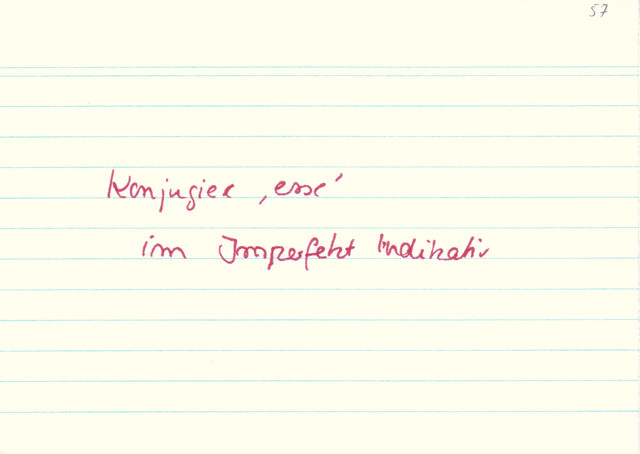 57
Konjugiere ‚esse‘
im Imperfekt Indikativ